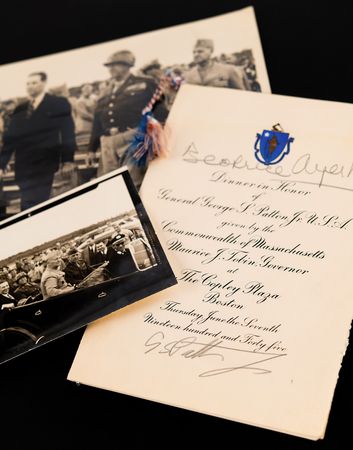 Beatrice Ayer
Dinner in Honor
of
General George S. Patton Jr. U.S.A.
given by the
Commonwealth of Massachusetts
Maurice J. Tobin, Governor
at
The Copley Plaza
Boston
Thursday June the Seventh
Nineteen hundred and forty five
G.S. Patton Jr